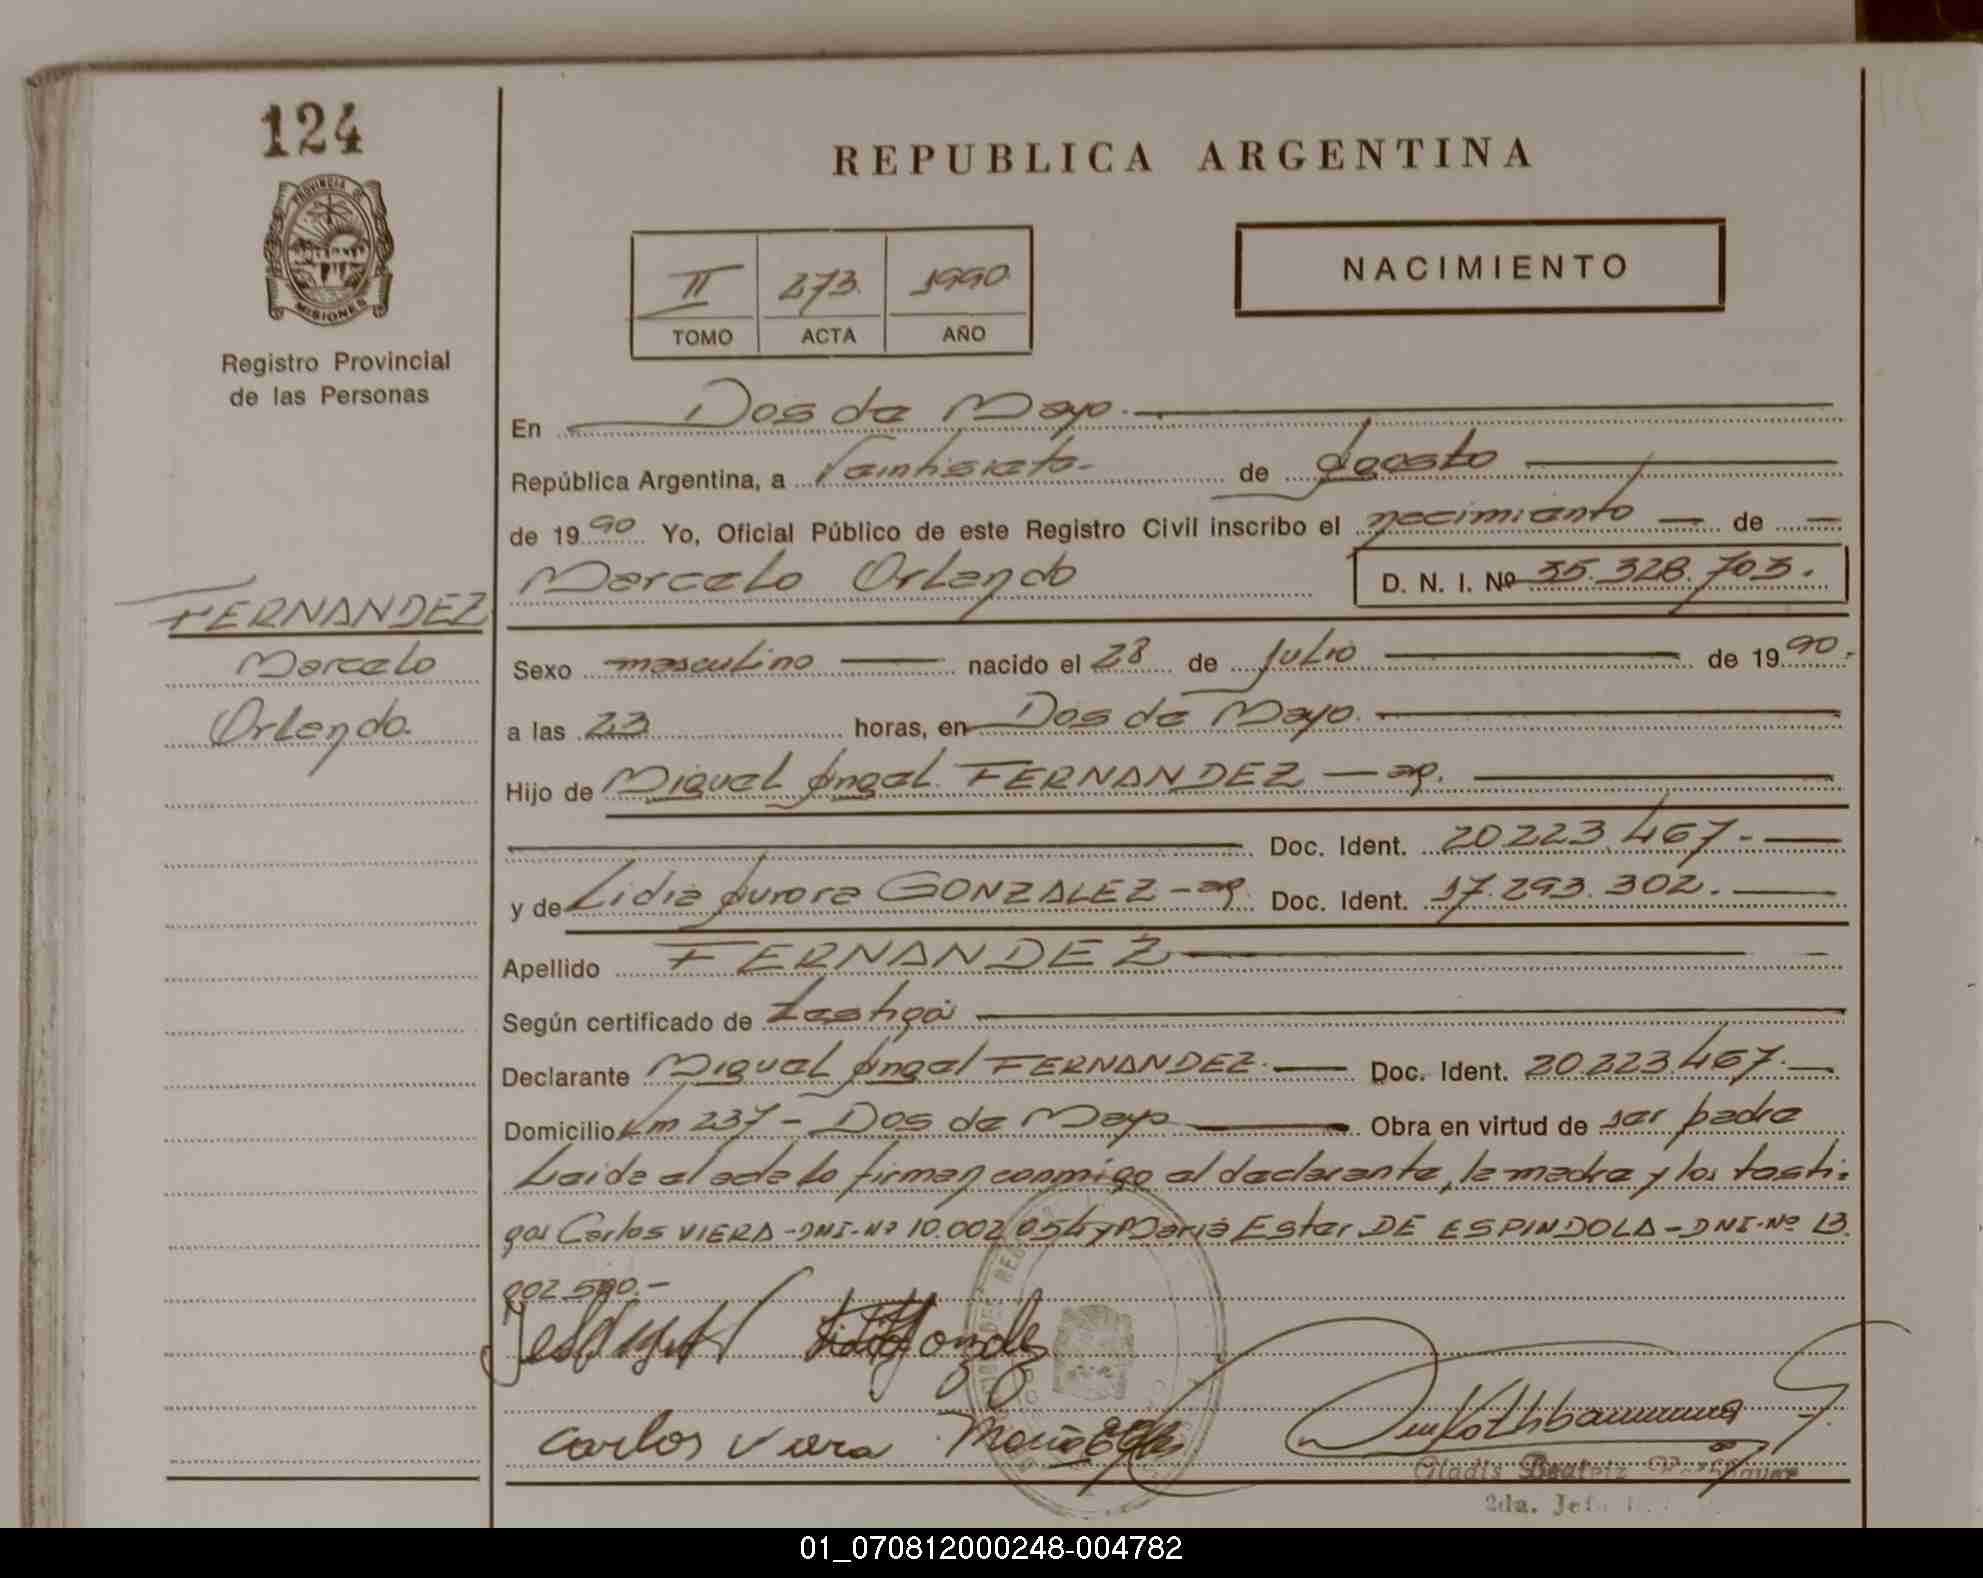 124
REPUBLICA ARGENTINA
PROVINCIA DE
MISIONES
Registro Provincial
de las Personas
II 273. 1990
TOMO ACTA AÑO
NACIMIENTO
En Dos de Mayo.
República Argentina, a Veintisiete. de Agosto
de 1990 Yo, Oficial Público de este Registro Civil inscribo el nacimiento de
Marcelo Orlando D. N. I. Nº 35.328.703.
FERNANDEZ
Marcelo
Orlando.
Sexo masculino nacido el 28 de Julio de 1990.
a las 23 horas, en Dos de Mayo.
Hijo de Miguel Angel FERNANDEZ - ap.
Doc. Ident. 20.223.467.-
y de Lidia Aurora GONZALEZ - ap. Doc. Ident. 17.293.302.
Apellido FERNANDEZ
Según certificado de testigo
Declarante Miguel Angel FERNANDEZ. Doc. Ident. 20.223.467.-
Domicilio Km 237 - Dos de Mayo Obra en virtud de ser padre
Leida el acta lo firman conmigo el declarante, la madre y los testi-
gos Carlos VIERA - DNI - Nº 10.002.054 y María Ester DE ESPINDOLA - DNI - Nº 13.
002.590.-
Carlos Viera María
Gladis Beatriz
2da. Jef
01_070812000248-004782